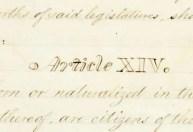 rths of said legislatures, sh
Article XIV.
rn or naturalized in the
thereof, are citizens of the